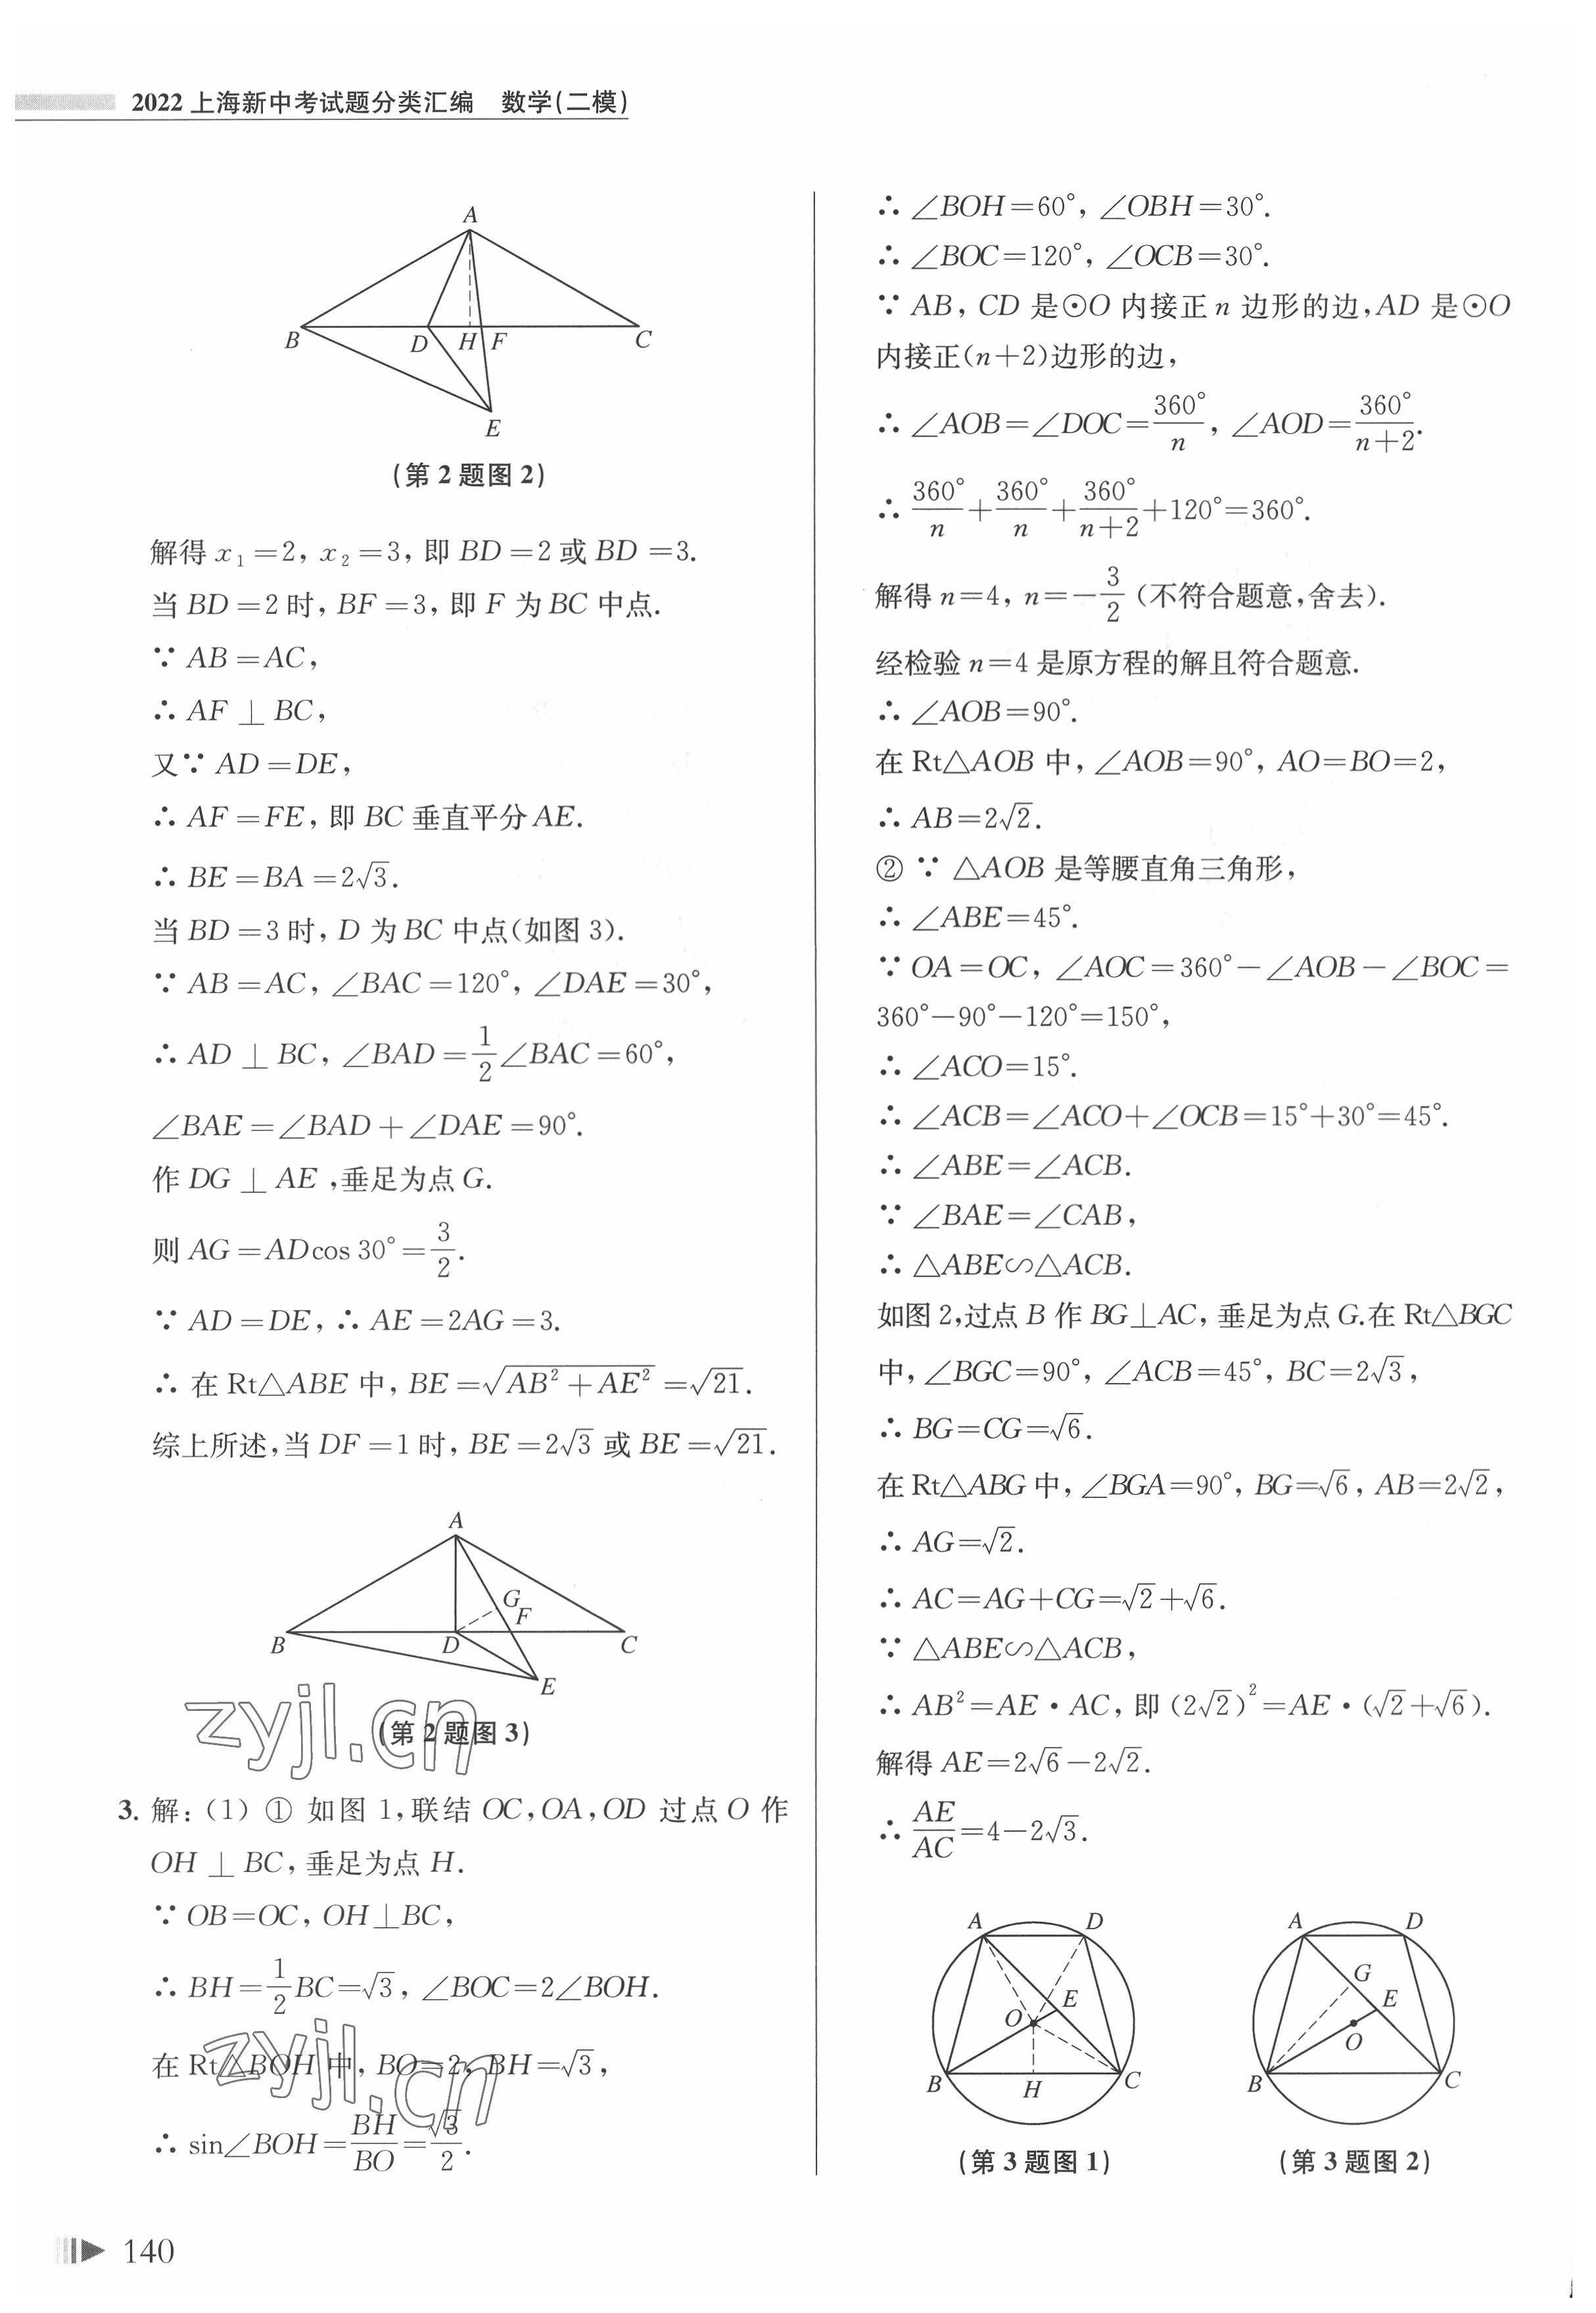 2022 上海新中考试题分类汇编 数学(二模)
A
B
D
H
F
C
E
(第 2 题图 2)
解得 x₁=2, x₂=3, 即 BD=2 或 BD=3.
当 BD=2 时, BF=3, 即 F 为 BC 中点.
∵ AB=AC,
∴ AF⊥BC,
又∵ AD=DE,
∴ AF=FE, 即 BC 垂直平分 AE.
∴ BE=BA=2√3.
当 BD=3 时, D 为 BC 中点(如图 3).
∵ AB=AC, ∠BAC=120°, ∠DAE=30°,
∴ AD⊥BC, ∠BAD=1/2∠BAC=60°,
∠BAE=∠BAD+∠DAE=90°.
作 DG⊥AE,垂足为点 G.
则 AG=ADcos 30°=3/2.
∵ AD=DE, ∴ AE=2AG=3.
∴ 在 Rt△ABE 中, BE=√(AB²+AE²)=√21.
综上所述,当 DF=1 时, BE=2√3 或 BE=√21.
A
G
F
B
D
C
E
(第 2 题图 3)
zyjl.cn
3. 解: (1) ① 如图 1,联结 OC, OA, OD 过点 O 作
OH⊥BC,垂足为点 H.
∵ OB=OC, OH⊥BC,
∴ BH=1/2BC=√3, ∠BOC=2∠BOH.
在 Rt△BOH 中, BO=2, BH=√3,
zyjl.cn
∴ sin∠BOH=BH/BO=√3/2.
∴ ∠BOH=60°, ∠OBH=30°.
∴ ∠BOC=120°, ∠OCB=30°.
∵ AB, CD 是⊙O 内接正 n 边形的边,AD 是⊙O
内接正(n+2)边形的边,
∴ ∠AOB=∠DOC=360°/n, ∠AOD=360°/(n+2).
∴ 360°/n+360°/n+360°/(n+2)+120°=360°.
解得 n=4, n=-3/2 (不符合题意,舍去).
经检验 n=4 是原方程的解且符合题意.
∴ ∠AOB=90°.
在 Rt△AOB 中, ∠AOB=90°, AO=BO=2,
∴ AB=2√2.
② ∵ △AOB 是等腰直角三角形,
∴ ∠ABE=45°.
∵ OA=OC, ∠AOC=360°-∠AOB-∠BOC=
360°-90°-120°=150°,
∴ ∠ACO=15°.
∴ ∠ACB=∠ACO+∠OCB=15°+30°=45°.
∴ ∠ABE=∠ACB.
∵ ∠BAE=∠CAB,
∴ △ABE∽△ACB.
如图 2,过点 B 作 BG⊥AC, 垂足为点 G.在 Rt△BGC
中, ∠BGC=90°, ∠ACB=45°, BC=2√3,
∴ BG=CG=√6.
在 Rt△ABG 中, ∠BGA=90°, BG=√6, AB=2√2,
∴ AG=√2.
∴ AC=AG+CG=√2+√6.
∵ △ABE∽△ACB,
∴ AB²=AE·AC, 即 (2√2)²=AE·(√2+√6).
解得 AE=2√6-2√2.
∴ AE/AC=4-2√3.
A
D
O
E
B
H
C
(第 3 题图 1)
A
D
G
E
O
B
C
(第 3 题图 2)
140